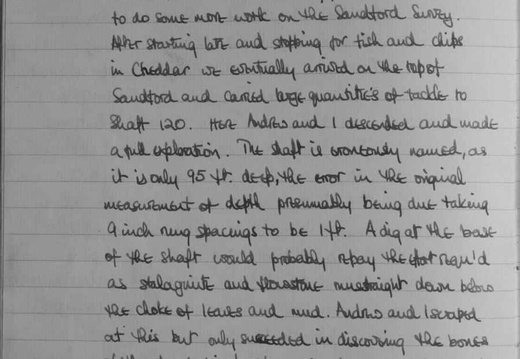 to do some more work on the Sandford Survey.
After starting late and stopping for fish and chips
in Cheddar we eventually arrived on the top of
Sandford and carried large quantities of tackle to
Shaft 120. Here Andrew and I descended and made
a full exploration. The shaft is erroneously named, as
it is only 95 ft. deep, the error in the original
measurement of depth presumably being due taking
9 inch rung spacings to be 1 ft. A dig at the base
of the shaft would probably repay the effort requ'd
as stalagmite and flowstone run straight down below
the choke of leaves and mud. Andrew and I scraped
at this but only succeeded in discovering the bones